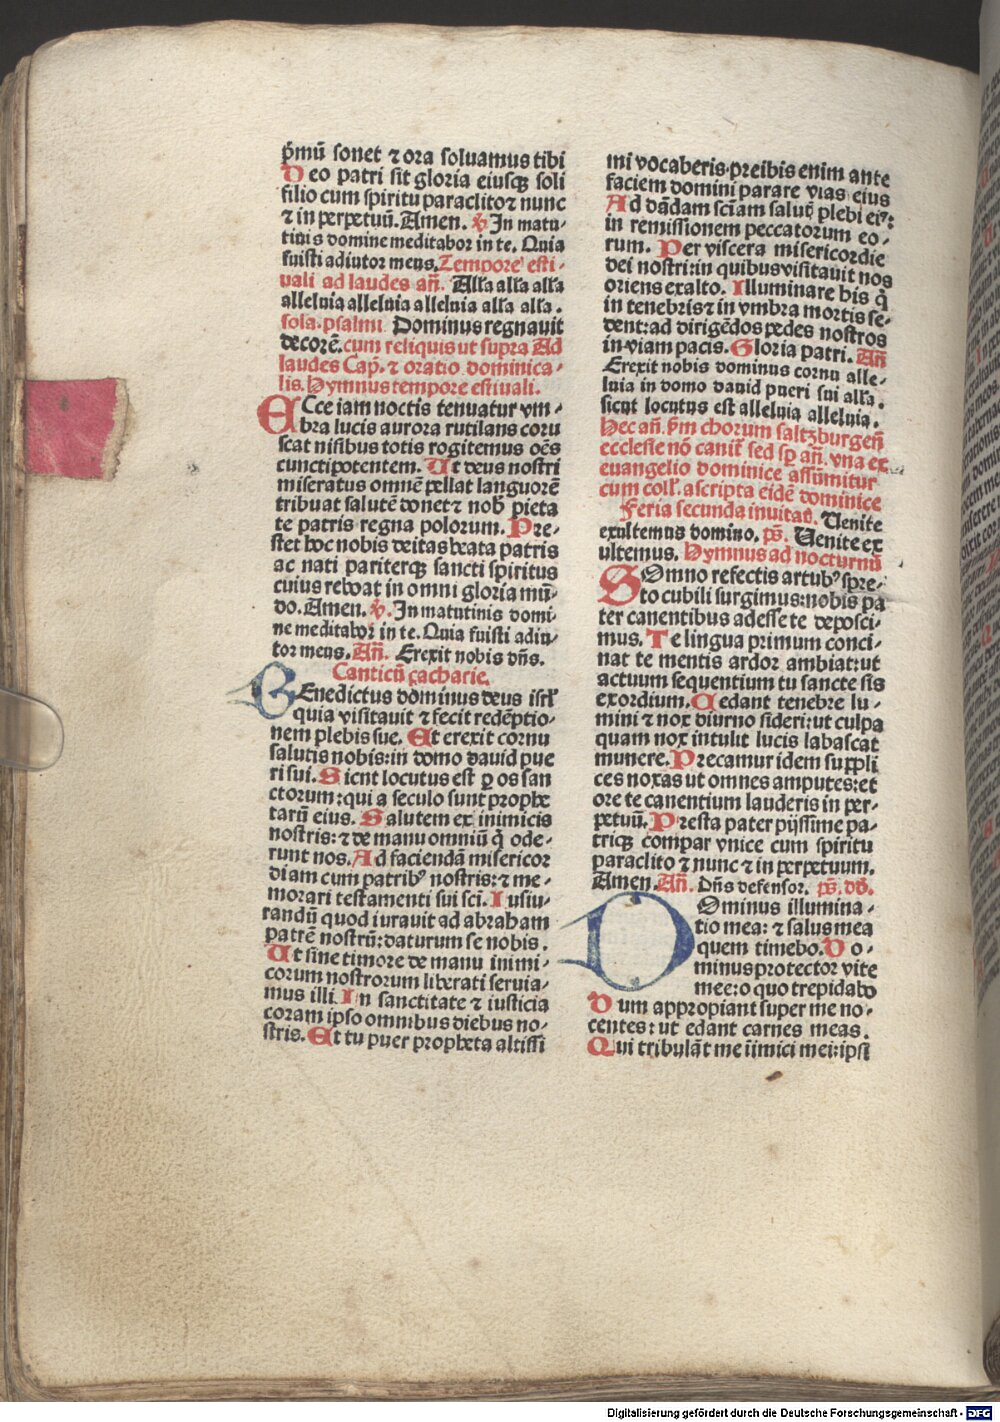 p̄mū sonet ⁊ ora soluamus tibi
Deo patri sit gloria eiusqꝫ soli
filio cum spiritu paraclito ⁊ nunc
⁊ in perpetuū. Amen. ℣ In matu-
tinis domine meditabor in te. Quia
fuisti adiutor meus. Tempore esti-
uali ad laudes añ. Alľa alľa alľa
alleluia alleluia alleluia alľa alľa.
sola. psalmi Dominus regnauit
decorē. cum reliquis ut supra Ad
laudes Cap̄. ⁊ oratio dominica-
lis. Hymnus tempore estiuali.
ECce iam noctis tenuatur vm-
bra lucis aurora rutilans coru
scat nisibus totis rogitemus oēs
cunctipotentem. Ut deus nostri
miseratus omnē pellat languorē
tribuat salutē donet ⁊ nob̄ pieta
te patris regna polorum. Pre-
stet hoc nobis deitas beata patris
ac nati pariterqꝫ sancti spiritus
cuius reboat in omni gloria mū-
do. Amen. ℣. In matutinis domi-
ne meditabor in te. Quia fuisti adiu-
tor meus. Añ. Erexit nobis dñs.
Canticū zacharie.
BEnedictus dominus deus isrľ
quia visitauit ⁊ fecit redēptio-
nem plebis sue. Et erexit cornu
salutis nobis: in domo dauid pue
ri sui. Sicut locutus est ꝑ os san
ctorum: qui a seculo sunt prophe
tarū eius. Salutem ex inimicis
nostris: ⁊ de manu omniū q̄ ode-
runt nos. Ad faciendā misericor
diam cum patribꝰ nostris: ⁊ me-
morari testamenti sui sci. Iusiu-
randū quod iurauit ad abraham
patrē nostrū: daturum se nobis.
Ut sine timore de manu inimi-
corum nostrorum liberati seruia-
mus illi. In sanctitate ⁊ iusticia
coram ipso omnibus diebus no-
stris. Et tu puer propheta altissi
mi vocaberis. preibis enim ante
faciem domini parare vias eius
Ad dādam sciam salutꝭ plebi eiꝰ:
in remissionem peccatorum eo-
rum. Per viscera misericordie
dei nostri: in quibus visitauit nos
oriens ex alto. Illuminare his q̄
in tenebris ⁊ in vmbra mortis se-
dent: ad dirigēdos pedes nostros
in viam pacis. Gloria patri. Añ
Erexit nobis dominus cornu alle-
luia in domo dauid pueri sui alľa.
sicut locutus est alleluia alleluia.
Hec añ. ẜm chorum saltzburgeñ
ecclesie nō canit̄ sed sꝑ añ. vna ex
euangelio dominice assūmitur
cum colľ. ascripta eidē dominice
Feria secunda inuitaď. Venite
exultemus domino. ps̄. Venite ex
ultemus. Hymnus ad nocturnū
SOmno refectis artubꝰ spre-
to cubili surgimus: nobis pa
ter canentibus adesse te deposci-
mus. Te lingua primum conci-
nat te mentis ardor ambiat: ut
actuum sequentium tu sancte sis
exordium. Cedant tenebre lu-
mini ⁊ nox diurno sideri: ut culpa
quam nox intulit lucis labascat
munere. Precamur idem suppli
ces noxas ut omnes amputes: et
ore te canentium lauderis in per-
petuū. Presta pater pijssime pa-
tricqꝫ compar vnice cum spiritu
paraclito ⁊ nunc ⁊ in perpetuum.
Amen. Añ. Dñs defensor. ps̄. dd̄.
DOminus illumina-
tio mea: ⁊ salus mea
quem timebo. Do-
minus protector vite
mee: o quo trepidabo
Dum appropiant super me no-
centes: ut edant carnes meas.
Qui tribulāt me ïimici mei: ipsi
Digitalisierung gefördert durch die Deutsche Forschungsgemeinschaft - DFG